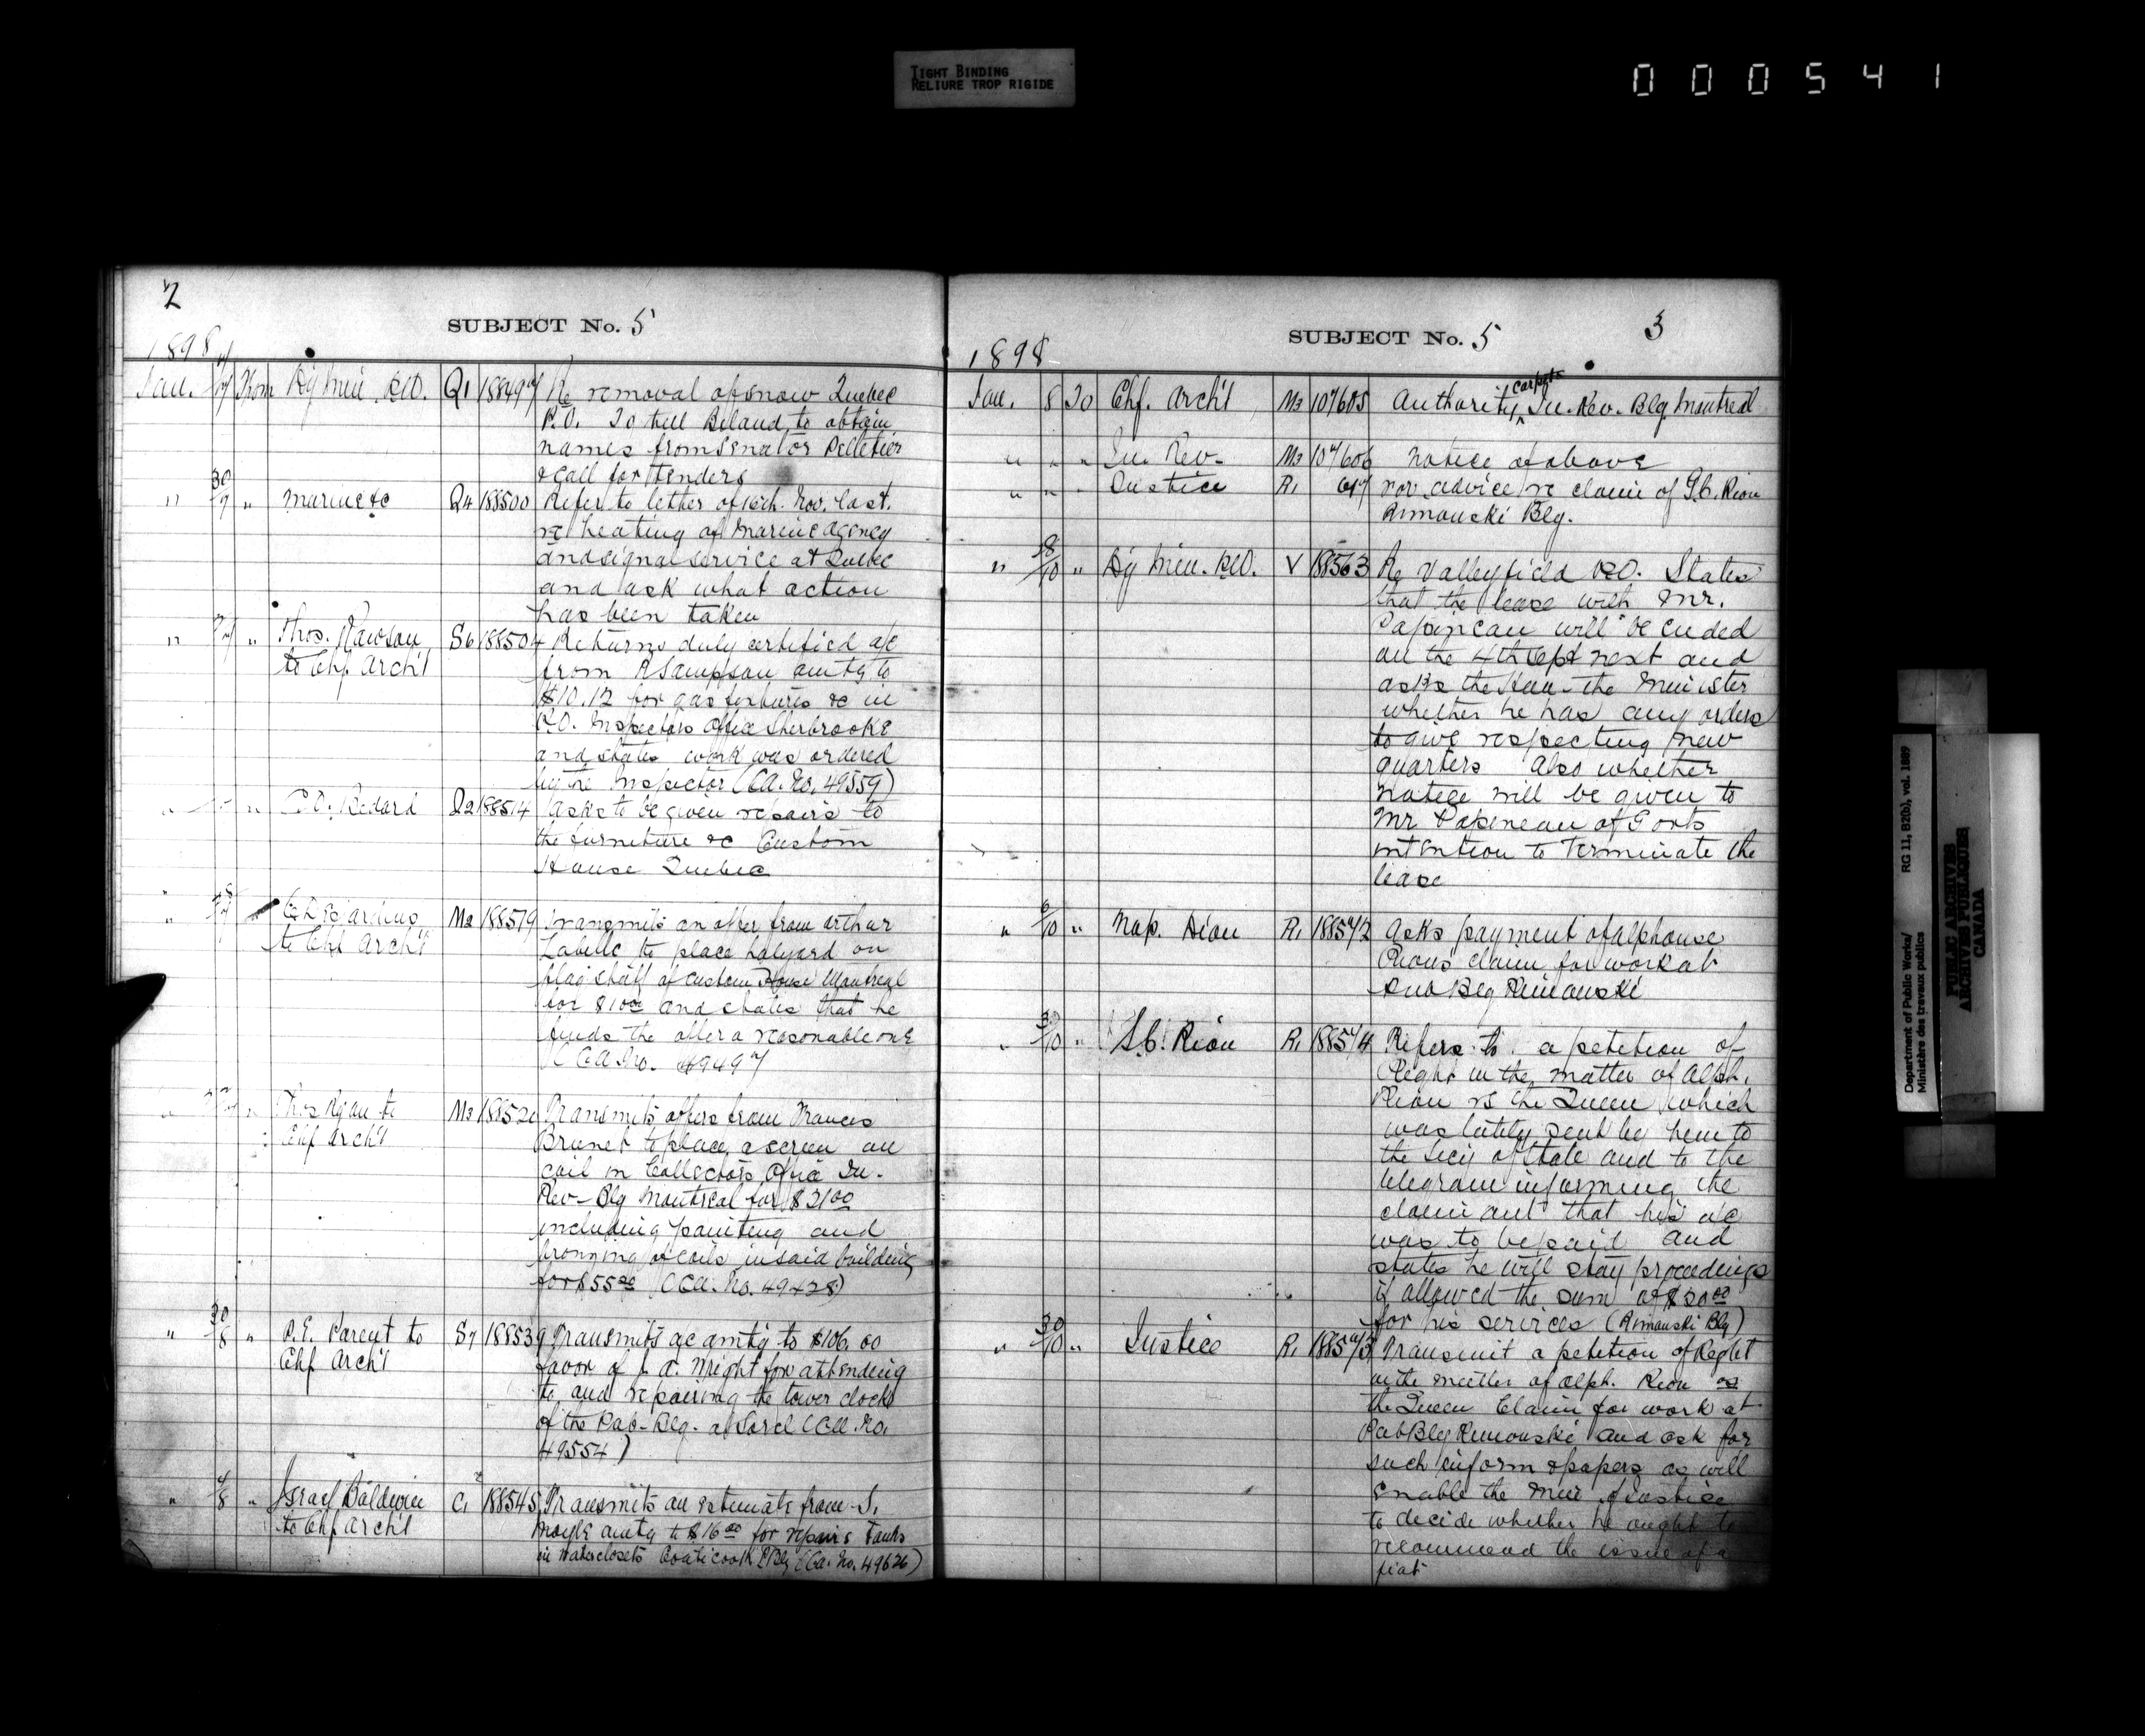 TIGHT BINDING
RELIURE TROP RIGIDE
000541
2
SUBJECT No. 5
1898
Jan. From Dy Min. P.W. Q1 188497 Re removal of snow Quebec
P.O. To tell Beland to obtain
names from Senator Pelletier
& call for tenders
" 30/7 " Marine &c Q4 188500 Refer to letter of 16th. Nov. last.
re heating of Marine agency
and signal service at Quebec
and ask what action
has been taken
" " Thos. Rawson S6 188504 Returns duly certified a/c
to Chf Archt from A Sampson amtg to
$10.12 for gas fixtures &c in
P.O. Inspectors Office Sherbrooke
and states work was ordered
by the Inspector (C.A. No. 49559)
" " C.O. Bedard Q2 188514 Asks to be given repairs to
the furniture &c Custom
House Quebec
" M2 188519 Transmits an offer from Arthur
to Chf Archt Labelle to place halyard on
flag staff of Custom House Montreal
for $10.00 and states that he
finds the offer a reasonable one
(C.A. No. 49497
" " to M3 188520 Transmits offers from Francis
Chf Archt Brunet to place a screen on
coil in Collectors Office In.
Rev- Blg Montreal for $21.00
including painting and
bronzing of coils in said building
for $55.00 (C.A. No. 49428)
" 30/8 " P.E. Parent to S7 188539 Transmits a/c amtg to $106.00
Chf Archt favor of J. A. Wright for attending
to and repairing the tower clock
of the Pub- Blg. at Sorel (C.A. No.
49554)
" 4/8 " Israel Baldwin C1 188545 Transmits an estimate from S.
to Chf Archt Moyle amtg to $16.00 for repairs Tanks
in waterclosets Coaticook P Blg (C.A. No. 49626)
SUBJECT No. 5
3
1898
Jan. 8 To Chf. Archt M3 107605 Authority carpets In. Rev. Blg. Montreal
" " " In. Rev- M3 107606 Notice of above
" " " Justice R1 617 For advice re claim of S.C. Riou
Rimouski Blg.
" 8/10 " Dy Min. P.W. V 188563 Re Valleyfield P.O. States
that the lease with Mr.
Papineau will be ended
on the 4th Sept next and
asks the Hon. the Minister
whether he has any orders
to give respecting new
quarters also whether
notice will be given to
Mr Papineau of Govts
intention to terminate the
lease
" 6/10 " Nap. Dion R1 188572 Asks payment of Alphonse
Riou's claim for work at
Pub Blg Rimouski
" " S.C. Riou R1 188574 Refers to a petition of
Right in the matter of Alph.
Riou vs the Queen which
was lately sent by him to
the Secy of State and to the
telegram informing the
claimant that his a/c
was to be paid and
states he will stay proceedings
if allowed the sum of $20.00
for his services (Rimouski Blg)
" 30/10 " Justice R1 188573 Transmit a petition of Right
in the matter of Alph. Riou vs
the Queen Claim for work at
Pub Blg Rimouski and ask for
such inform & papers as will
enable the Min of Justice
to decide whether he ought to
recommend the issue of a
fiat
Department of Public Works/ RG 11, B2(b), vol. 1889
Ministère des travaux publics
PUBLIC ARCHIVES
ARCHIVES PUBLIQUES
CANADA